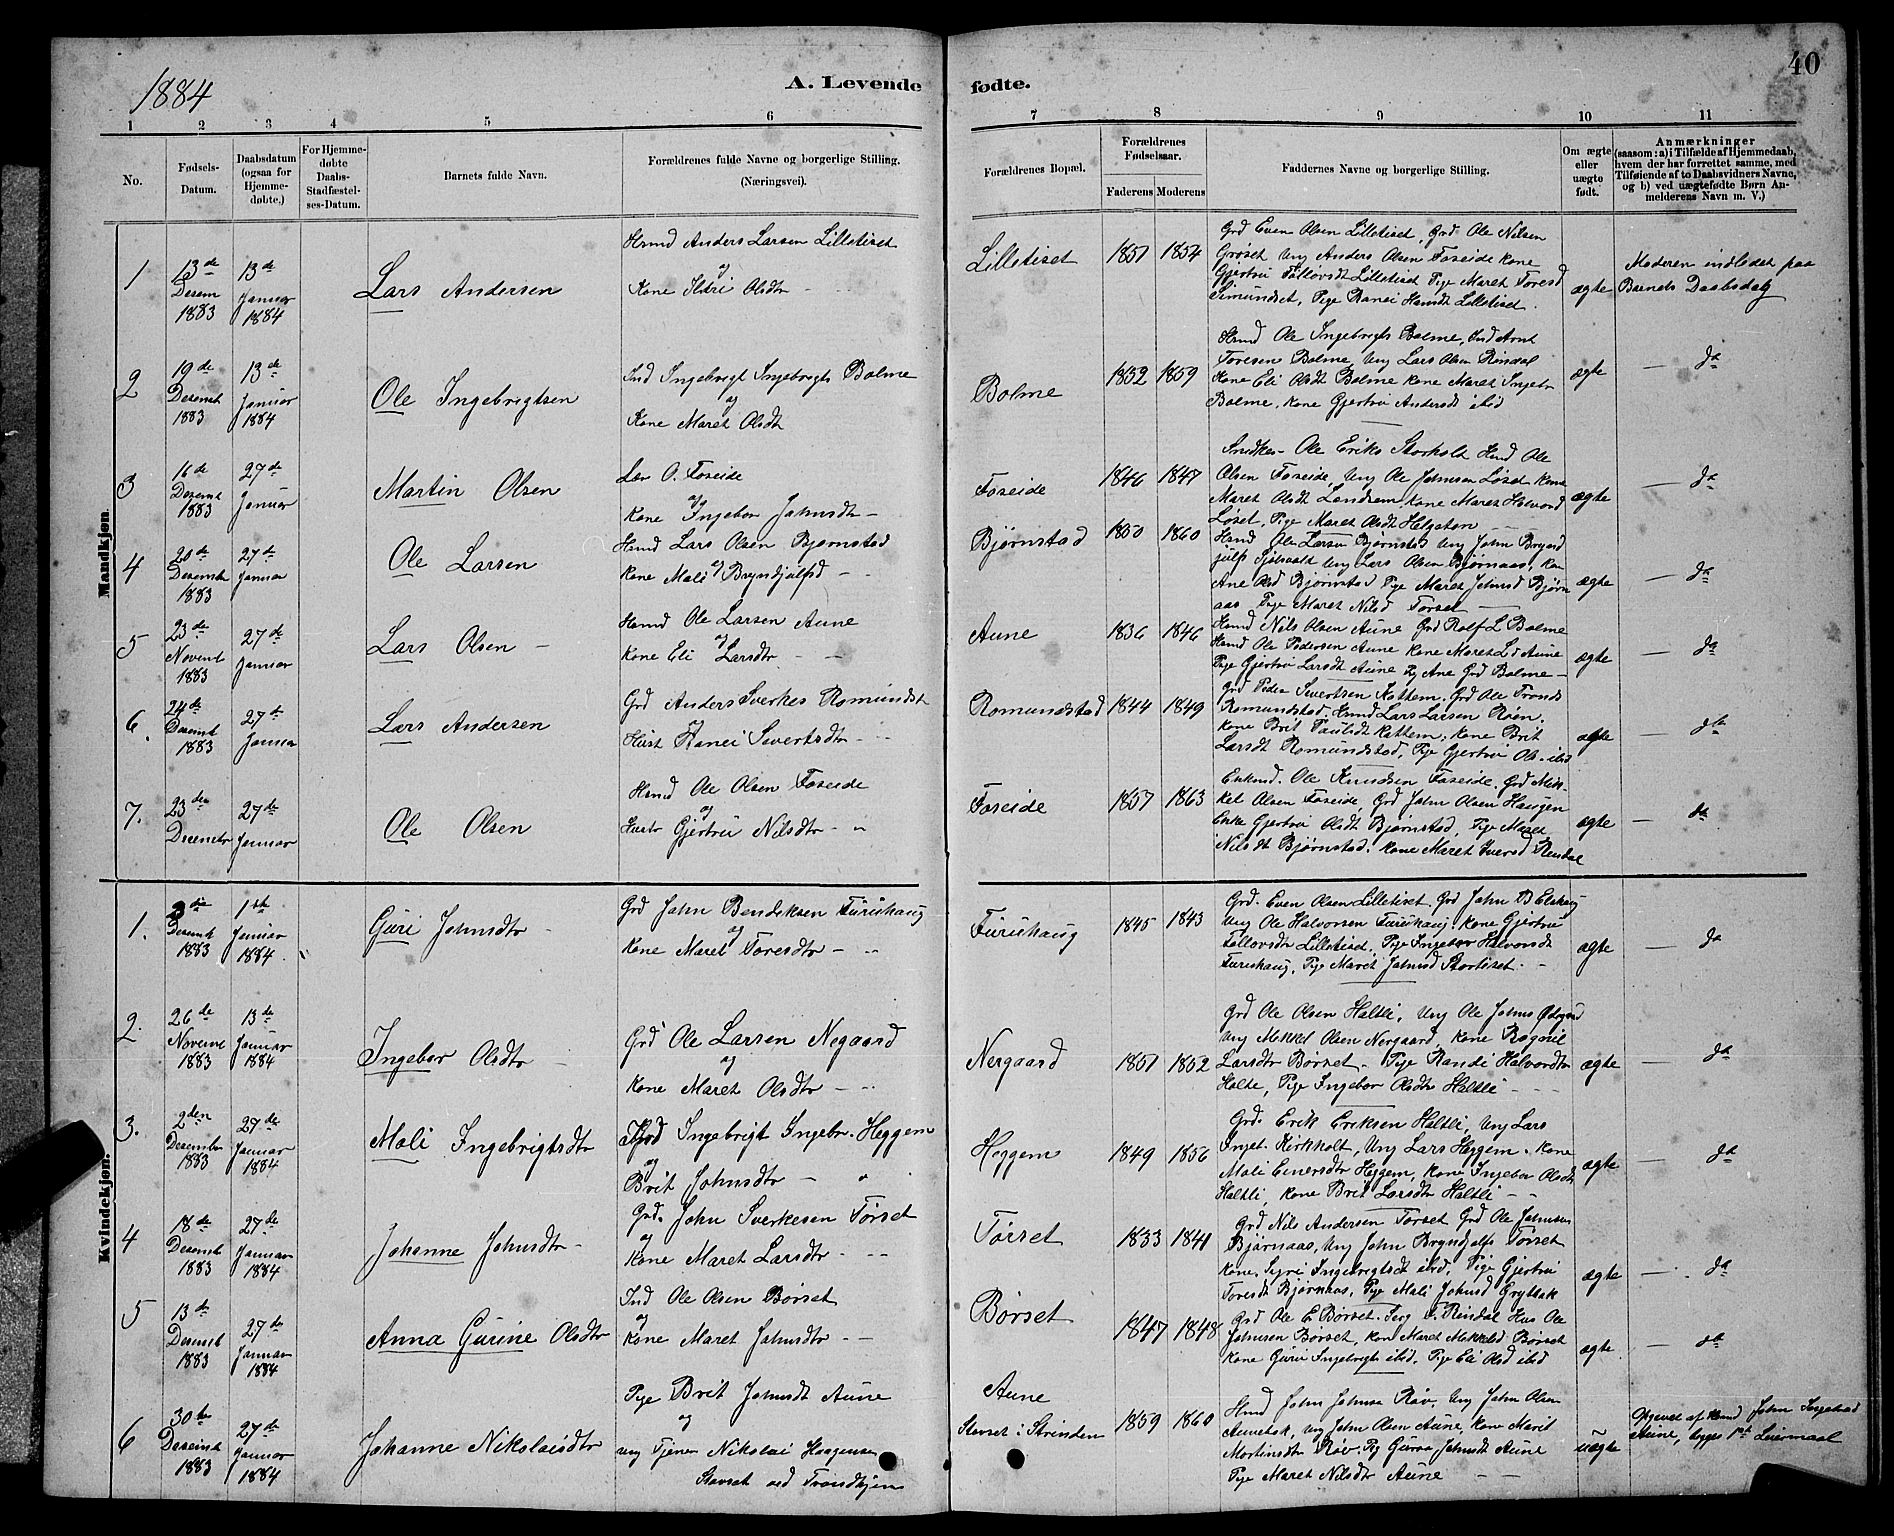 1884
A. Levende fødte.
40
1 2 3 4 5 6 7 8 9 10 11
No.
Fødsels-
Datum.
Daabsdatum
(ogsaa for
Hjemme-
døbte.)
For Hjemme-
døbte
Daabs-
Stadfæstel-
ses-Datum.
Barnets fulde Navn.
Forældrenes fulde Navne og borgerlige Stilling.
(Næringsvei).
Forældrenes Bopæl.
Forældrenes
Fødselsaar.
Faderens Moderens
Faddernes Navne og borgerlige Stilling.
Om ægte
eller
uægte
født.
Anmærkninger
(saasom: a) i Tilfælde af Hjemmedaab,
hvem der har forrettet samme, med
Tilføiende af to Daabsvidners Navne,
og b) ved uægtefødte Børn An-
melderens Navn m. V.)
Mandkjøn.
1
13de
Desem
1883
13de
Januar
1884
Lars Andersen
Hmd Anders Larsen Lilletiset
og
Kone Sidri Olsdtr
Lilletiset
1851 1854
Grd Even Olsen Lilletiset, Grd Ole Nilsen
Grøset Ung Anders Olsen Foseide Kone
Gjertru Follovsdt Lilletiset Pige Maret Toresd
Simundset, Pige Ranei Hamdt Lilletiset.
ægte
Moderen indledet paa
Barnets Daabsdag
2
19de
Desemb
1883
13de
Januar
1884
Ole Ingebrigtsen
Ind Ingebrigt Ingebrigts Bolme
og
Kone Maret Olsdt
Bolme
1852 1859
Hmd Ole Ingebrigts Bolme, Ind Arnt
Toresen Bolme, Ung Lars Olsen Rindal
Kone Eli Olsdt Bolme Kone Maret Ingebr
Bolme, Kone Gjertru Andersdt ibid
ægte
— da
3
16de
Desemb
1883
27de
Januar
Martin Olsen
Lær O. Foseide
og
Kone Ingebor Johnsdtr —
Foseide
1846 1847
Snedker Ole Eriks Storholt Hmd Ole
Olsen Foseide, Ung Ole Johnsen Løset Kone
Maret Olsdt Landsem, Kone Maret Halvord
Løset, Pige Maret Olsdt Helgeton
ægte
— da
4
20de
Desemb
1883
27de
Januar
Ole Larsen
Hmd Lars Olsen Bjørnstad
og
Kone Mali Bryndjulfsd —
Bjørnstad
1850 1860
Hmd Ole Larsen Bjørnstad Ung John Brynd
julfs Ung Lars Olsen Bjørnaas, Kon
Ane Olsd Bjørnstad Pige Maret Johnsd Bjørn
aas Pige Maret Nilsd Torset —
ægte
— da
5
23de
Novemb
1883
27de
Januar
Lars Olsen —
Hmd Ole Larsen Aune
og
Kone Eli Larsdtr —
Aune
1836 1846
Hmd Nils Olsen Aune Grd Rolf L Bolme
Hmd Ole Pedersen Aune Kone Maret L d Aune
Pige Gjertru Larsdt Aune Pg Ane Grd Bolme —
ægte
— da
6.
24de
Desemb
1883
27de
Januar
Lars Andersen
Grd Anders Sverkes Romundst
og
Hust Ranei Sivertsdtr —
Romundstad
1844 1849
Grd Peder Sivertsen Kattem. Grd Ole Tronds
Romundstad, Hmd Lars Larsen Røen.
Kone Brit Paulsdt Kattem; Kone Brit
Larsdt Romundstad, Pige Gjertru Ols. ibid
ægte
— da
7.
23de
Decembr
27de
Januar
Ole Olsen
Hmd Ole Olsen Foseide
og
Hustr Gjertru Nilsdtr —
Foseide
1857 1863
Enkmd. Ole Knudsen Foseide. Grd Mik-
kel Olsen Foseide, Grd John Olsen Haugen
Enke Gjertru Olsdt Bjørnstad, Pige Maret
Nilsdt Bjørnstad. Kone Maret Iversd Rindal
ægte
— da
Kvindekjøn.
1.
3die
Desemb
1883
1ste
Januar
1884.
Guri Johnsdtr —
Grd John Bendiksen Furuhaug
og
Kone Maret Toresdtr —
Furuhaug
1845 1843
Grd. Even Olsen Lilletiset. Grd John B Elshaug
Ung Ole Halvorsen Furuhaug. Kone Gjertru
Follovsdtr Lilletiset, Pige Ingebor Halvorsdt
Furuhaug, Pige Maret Johnsd Stortiset. —
ægte
— da
2.
26de
Novemb
1883
13de
Januar
1884
Ingebor Olsdtr —
Grd Ole Larsen Negaard
og
Kone Maret Olsdtr —
Nergaard
1851 1852
Grd Ole Olsen Haltli, Ung Ole Johns
Ung Mikkel Olsen Nergaard, Kone Ragnil
Larsdtr Børset. Pige Randi Halvordtr
Halte, Pige Ingebor Olsdtr Haltli —
ægte
— da
3.
2den
Desember
1883
27de
Januar
1884
Mali Ingebrigtsdtr
Grd Ingebrigt Ingebr. Heggem
og
Brit Johnsdtr —
Heggem
1849 1856
Grd. Erik Eriksen Haltli, Ung Lars
Inget. Kirkholt, Ung Lars Heggem. Kone
Mali Einersdtr Heggem, Kone Ingebor Olsdt
Haltli, Kone Brit Larsdtr Haltli —
ægte
— da
4
18de
Desemb
1883
27de
Januar
1884
Johanne Johnsdtr —
Grd. John Sverkesen Tørset
og
Kone Maret Larsdtr —
Tørset
1833 1841
Grd Nils Andersen Torset Grd Ole Johnsen
Bjørnaas, Ung John Bryndjulfs Torset
Kone, Syri Ingebrigtsdt ibid, Pige Gjertru
Toresdt Bjørnaas, Pige Mali Johnsd Gryttbak
ægte
— da
5
13de
Desemb
1883
27de
Januar
1884
Anna Gurine Olsdtr
Ind Ole Olsen Børset
og
Kone Maret Johnsdtr —
Børset
1847 1848
Grd Ole E. Børset. Rindal Hus Ole
Johnsen Børset, Kone Maret Mikkelsd Børset
Kone Guru Ingebrigts ibid, Pige Eli Olsd ibid
ægte
— da
6
30te
Desemb
1883
27de
Januar
1884
Johanne Nikolaisdtr
Pige Brit Johnsdt Aune
og
ung Tjener Nikolai Hagensen
Stavset ved Trondhjem
Aune
Stavset i Strinden
1859 1860
Hmd John Johnsen Røv, Ung John Olsen
Aunebak, ung John Olsen Aune, Kone Marit
Mortinsdtr Røv. Pg Gurru Johnsdt Aune
Pige Maret Nilsdtr Aune —
uægte
Opgivet af Hmd John Ingebrd
Aune, begges 1ste Leiermaal